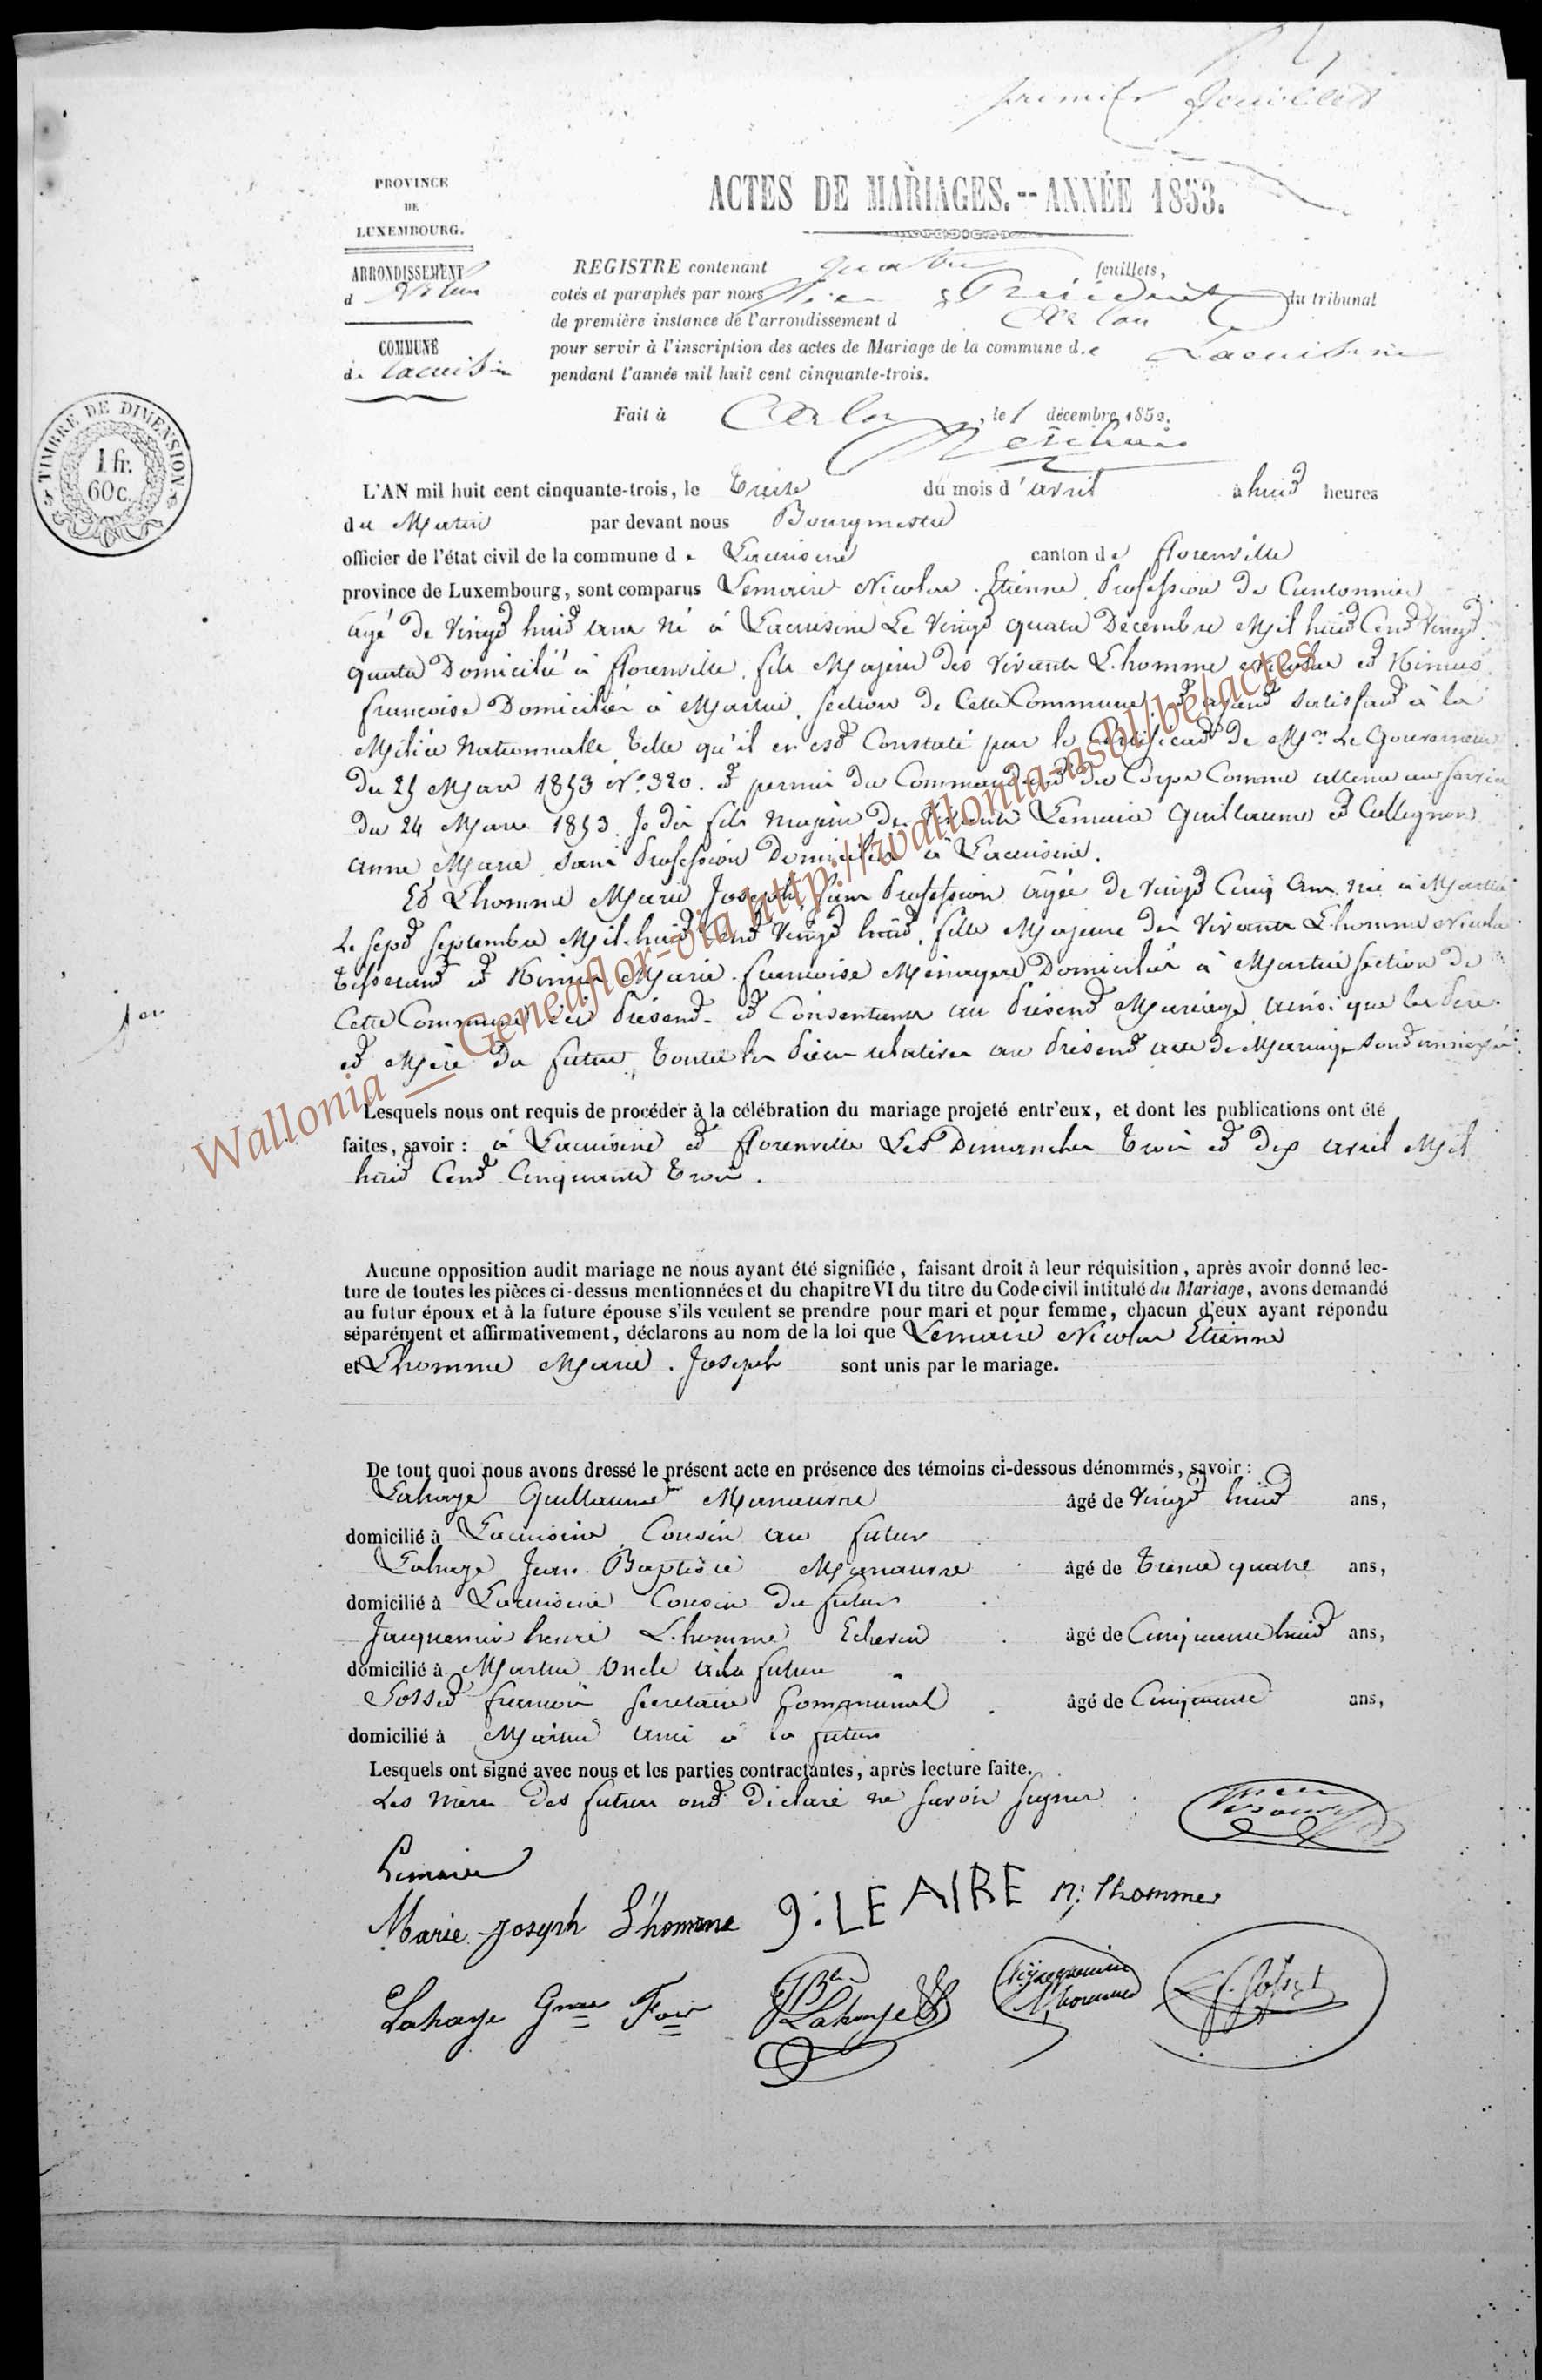 premier feuillet
PROVINCE
DE
LUXEMBOURG.
ACTES DE MARIAGES.--ANNÉE 1853.
ARRONDISSEMENT
d Arlon
COMMUNE
de Lacuisine
REGISTRE contenant quatre feuillets,
cotés et paraphés par nous Président du tribunal
de première instance de l'arrondissement d Arlon
pour servir à l'inscription des actes de Mariage de la commune de Lacuisine
pendant l'année mil huit cent cinquante-trois.
Fait à Arlon, le 1 décembre 1852.
TIMBRE DE DIMENSION
1 fr.
60 c.
L'AN mil huit cent cinquante-trois, le treize du mois d'avril à huit heures
du Matin par devant nous Bourgmestre
officier de l'état civil de la commune de Lacuisine canton de florenville
province de Luxembourg, sont comparus Lemaire Nicolas Etienne Profession de Cantonnier
agé de vingt huit ans né à Lacuisine Le vingt quatre Decembre Mil huit Cent vingt
quatre Domicilié à florenville. fils Majeur des vivants L'homme Nicolas et
francoise Domiciliés à Martué, section de Cette Commune. et ayant satisfait à la
Milice Nationnalle telle qu'il en est Constaté par le Certificat de Mr. Le Gouverneur
Du 25 Mars 1853 No. 320. et permis du Commandant du Corps Comme
du 24 Mars 1853. Je dis fils majeur des vivants Lemaire Guillaume et Collignon
anne Marie, sans Profession Domiciliés à Lacuisine.
Et Lhomme Marie Joseph, sans Profession agée de vingt Cinq Ans née à Martué
Le sept septembre Mil huit Cent vingt huit, fille Majeure des vivants Lhomme Nicolas
tisserand et Marie francoise Menagere Domiciliés à Martué section de
Cette Commune ici Présents et Consentants au Présent Mariage ainsi que les Pere
et Mère du futur, toutes les Pieces relatives au Présent acte de Mariage sont annexées
Lesquels nous ont requis de procéder à la célébration du mariage projeté entr'eux, et dont les publications ont été
faites, savoir : à Lacuisine et florenville Les Dimanches trois et dix avril Mil
huit Cent Cinquante trois.
Aucune opposition audit mariage ne nous ayant été signifiée, faisant droit à leur réquisition, après avoir donné lec-
ture de toutes les pièces ci-dessus mentionnées et du chapitre VI du titre du Code civil intitulé du Mariage, avons demandé
au futur époux et à la future épouse s'ils veulent se prendre pour mari et pour femme, chacun d'eux ayant répondu
séparément et affirmativement, déclarons au nom de la loi que Lemaire Nicolas Etienne
et Lhomme Marie Joseph sont unis par le mariage.
De tout quoi nous avons dressé le présent acte en présence des témoins ci-dessous dénommés, savoir :
Lahaye Guillaume Manœuvre âgé de vingt huit ans,
domicilié à Lacuisine Cousin au futur
Lahaye Jean Baptiste Manœuvre âgé de trente quatre ans,
domicilié à Lacuisine Cousin du futur
Jacquemin henri L'homme Echevin âgé de Cinquante huit ans,
domicilié à Martué Oncle à la future
Gosset francois secretaire Communal âgé de Cinquante ans,
domicilié à Martué ami à la future
Lesquels ont signé avec nous et les parties contractantes, après lecture faite.
Les mères des futurs ont declaré ne savoir signer
Lemaire
Marie Joseph L'homme g: LEAIRE n: lhomme
Lahaye Gme JBte Lahaye
Wallonia__Geneaflor-ola http://wallonia-asbl/be/actes